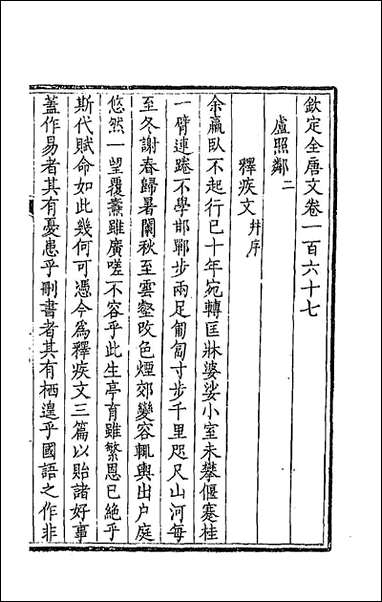 欽定全唐文卷一百六十七
盧照鄰二
釋疾文并序
余羸臥不起行已十年宛轉匡牀婆娑小室未攀偃蹇桂
一臂連蜷不學邯鄲步兩足匍匐寸步千里咫尺山河每
至冬謝春歸暑闌秋至雲壑改色煙郊變容輒輿出戶庭
悠然一望覆燾雖廣嗟不容乎此生亭育雖繁恩已絕乎
斯代賦命如此幾何可憑今為釋疾文三篇以貽諸好事
蓋作易者其有憂患乎刪書者其有栖遑乎國語之作非